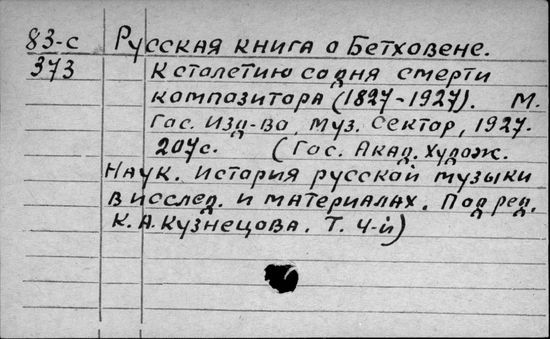 83-с Русская книга о Бетховене.
373 К столетию со дня смерти
композитора (1827-1927). М.
Гос. Изд-во, Муз. Сектор, 1927.
207с. (Гос. Акад. Худож.
Наук. История русской музыки
в исслед. и материалах. Под ред.
К.А.Кузнецова. Т. 4-й)